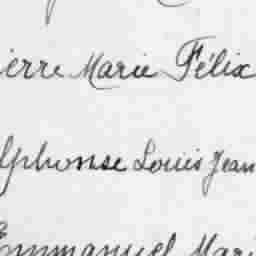 ierre Marie Félix
lphonse Louis Jean
Emmanuel Mari